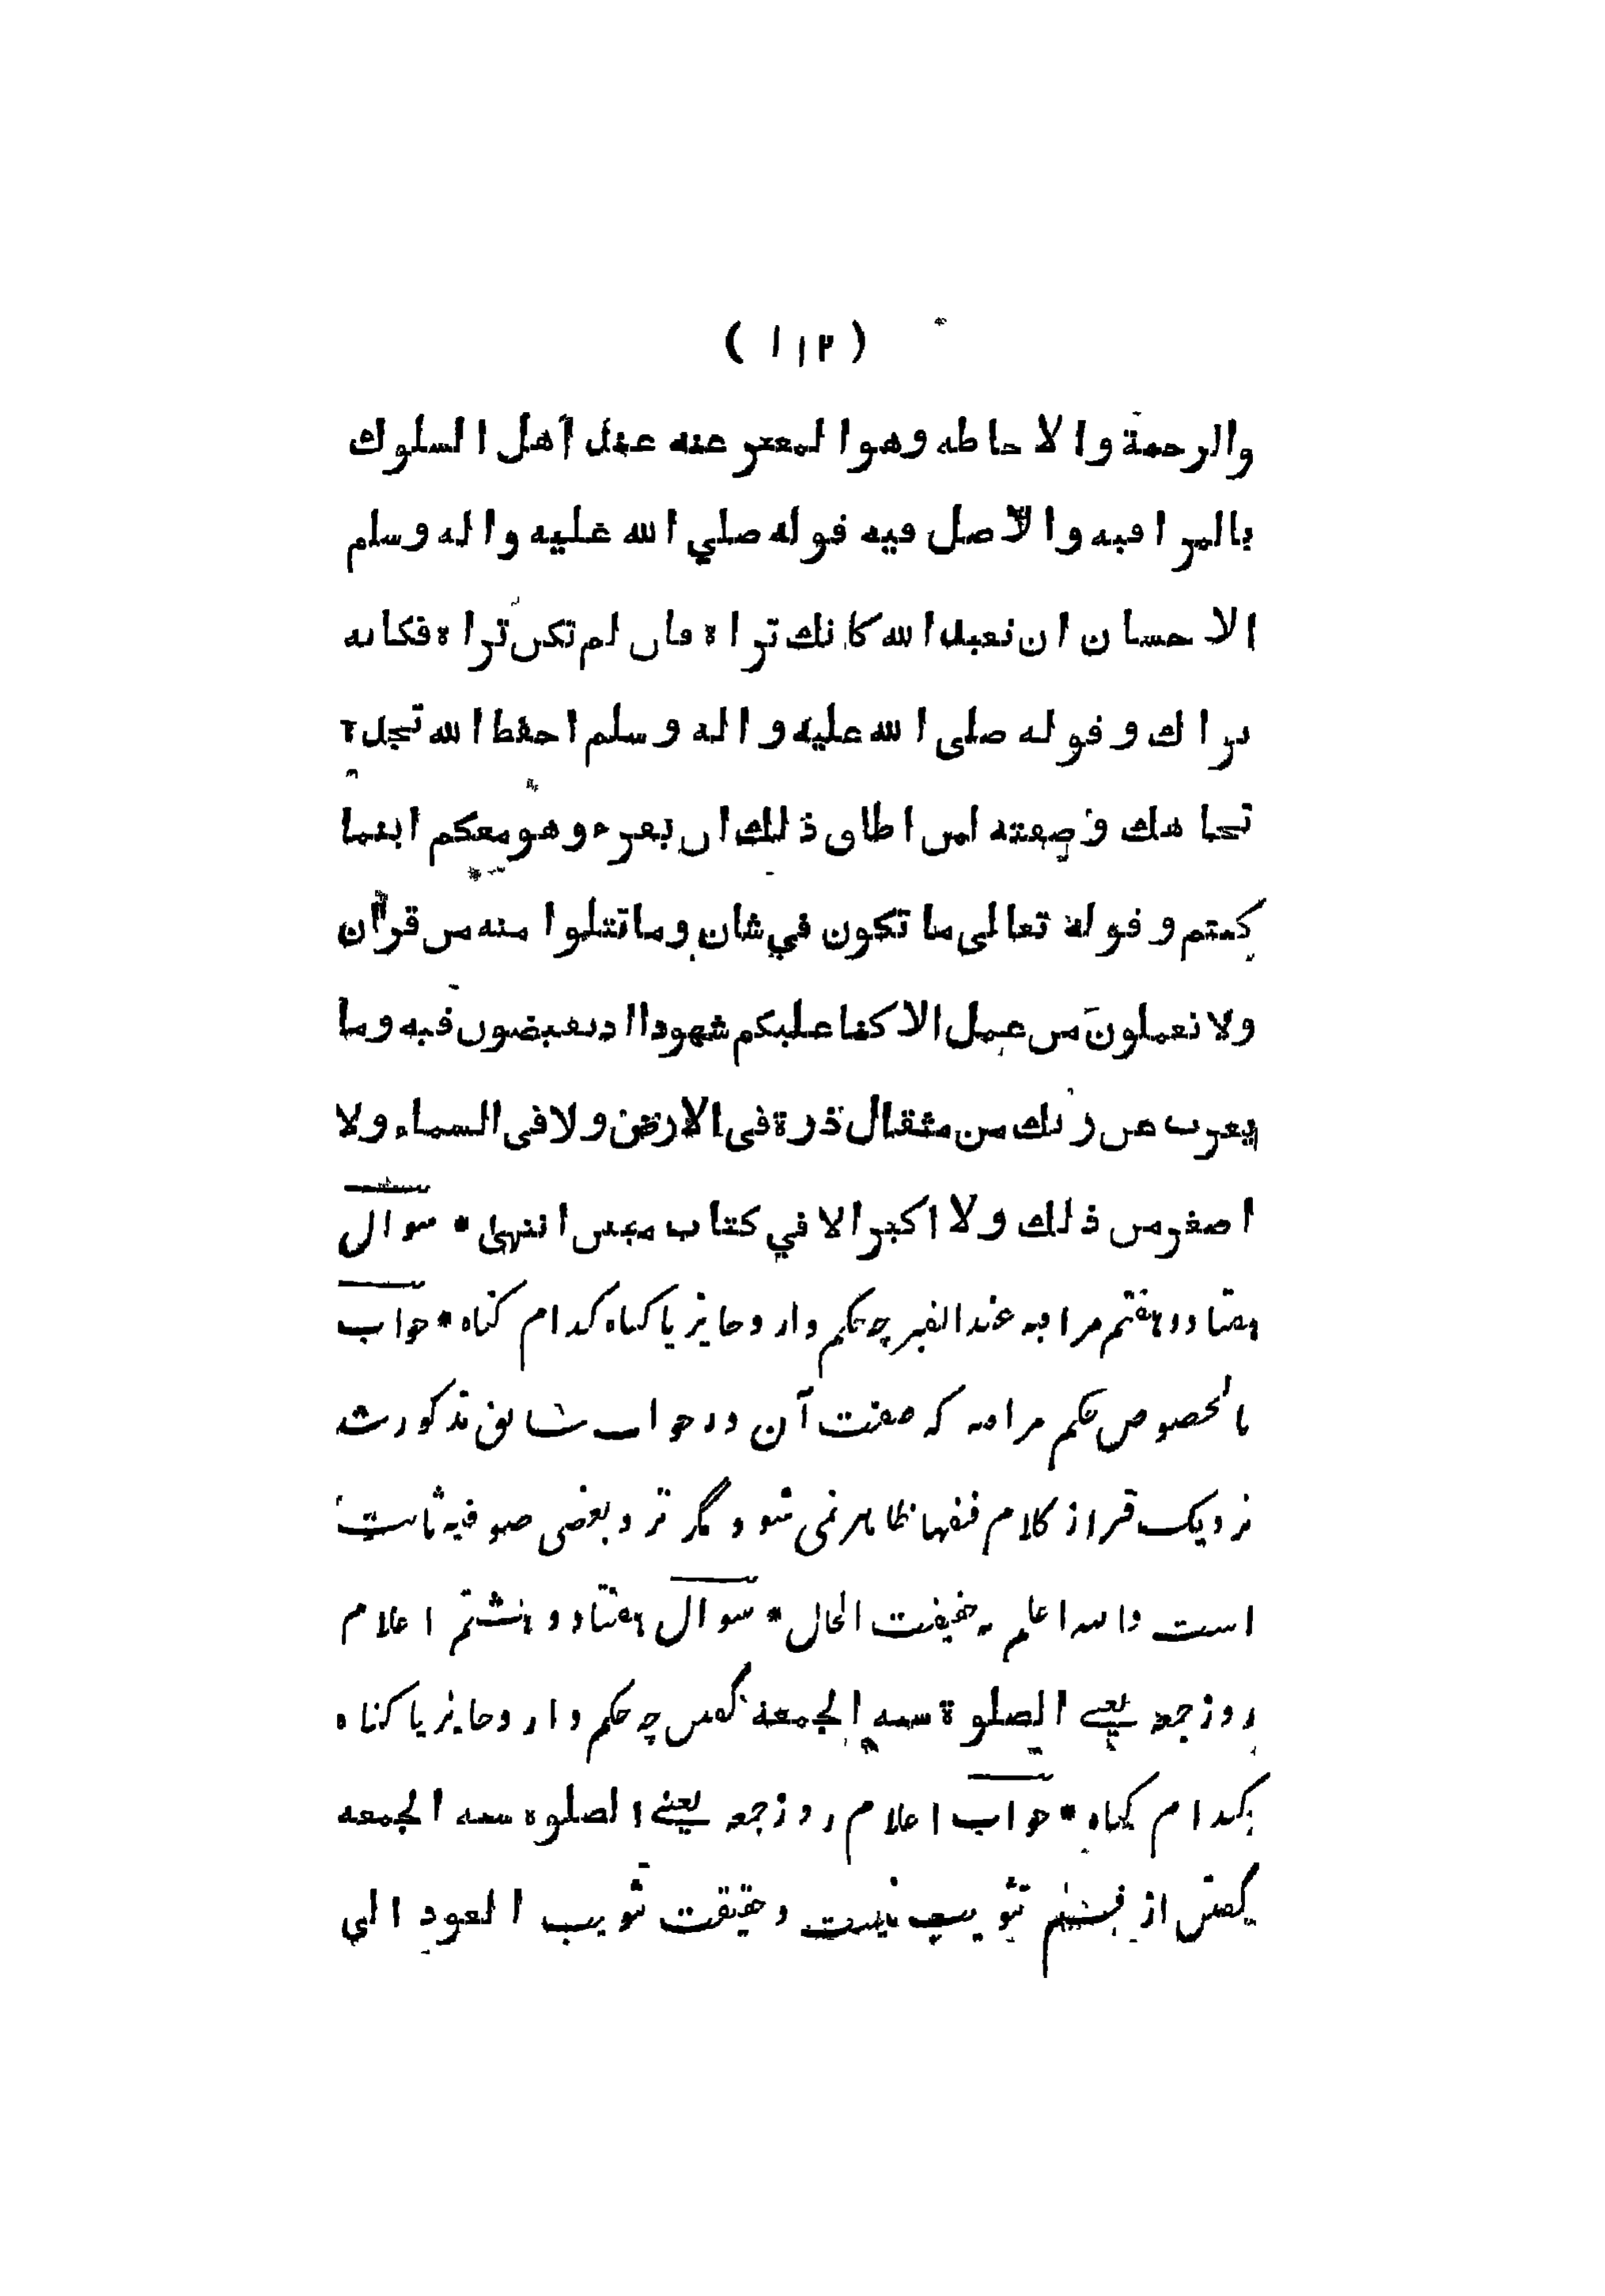 ( ۱۱۲ )
والرحمة والاحاطه وهوالمعبر عنه عند اهل السلوك
بالمراقبه والاصل فيه قوله صلي الله عليه واله وسلم
الاحسان ان تعبدالله كانك تراه فان لم تكن تراه فكانه
يراك وقوله صلى الله عليه واله وسلم احفظ الله تجده
تجاهك وصفته لمن اطاق ذلك ان يقرء وهو معكم اينما
كنتم وقوله تعالى ما تكون في شان وما تتلوا منه من قرآن
ولا تعملون من عمل الا كنا عليكم شهودا اذ تفيضون فيه وما
يعزب عن ربك من مثقال ذرة فى الارض ولا فى السماء ولا
اصغر من ذلك ولا اكبر الا في كتاب مبين انتهى * سوال
هفتاد و هفتم مراقبه عند القبر چه حکم دارد جایز یا گناه کدام گناه * جواب
بالخصوص حکم مراقبه که صفت آن در جواب سابق مذکور شد
نزدیک قبر از کلام فقها ظاهر نمی شود مگر نزد بعضی صوفیه ثابت
است والله اعلم به حقیقت الحال * سوال هفتاد و هشتم اعلام
روز جمعه یعنے الصلوة سنه الجمعة گفتن چه حکم دارد جایز یا گناه
کدام گناه * جواب اعلام روز جمعه یعنے الصلوه سنه الجمعه
گفتن از قسم تثویب نیست و حقیقت تثویب العود الى